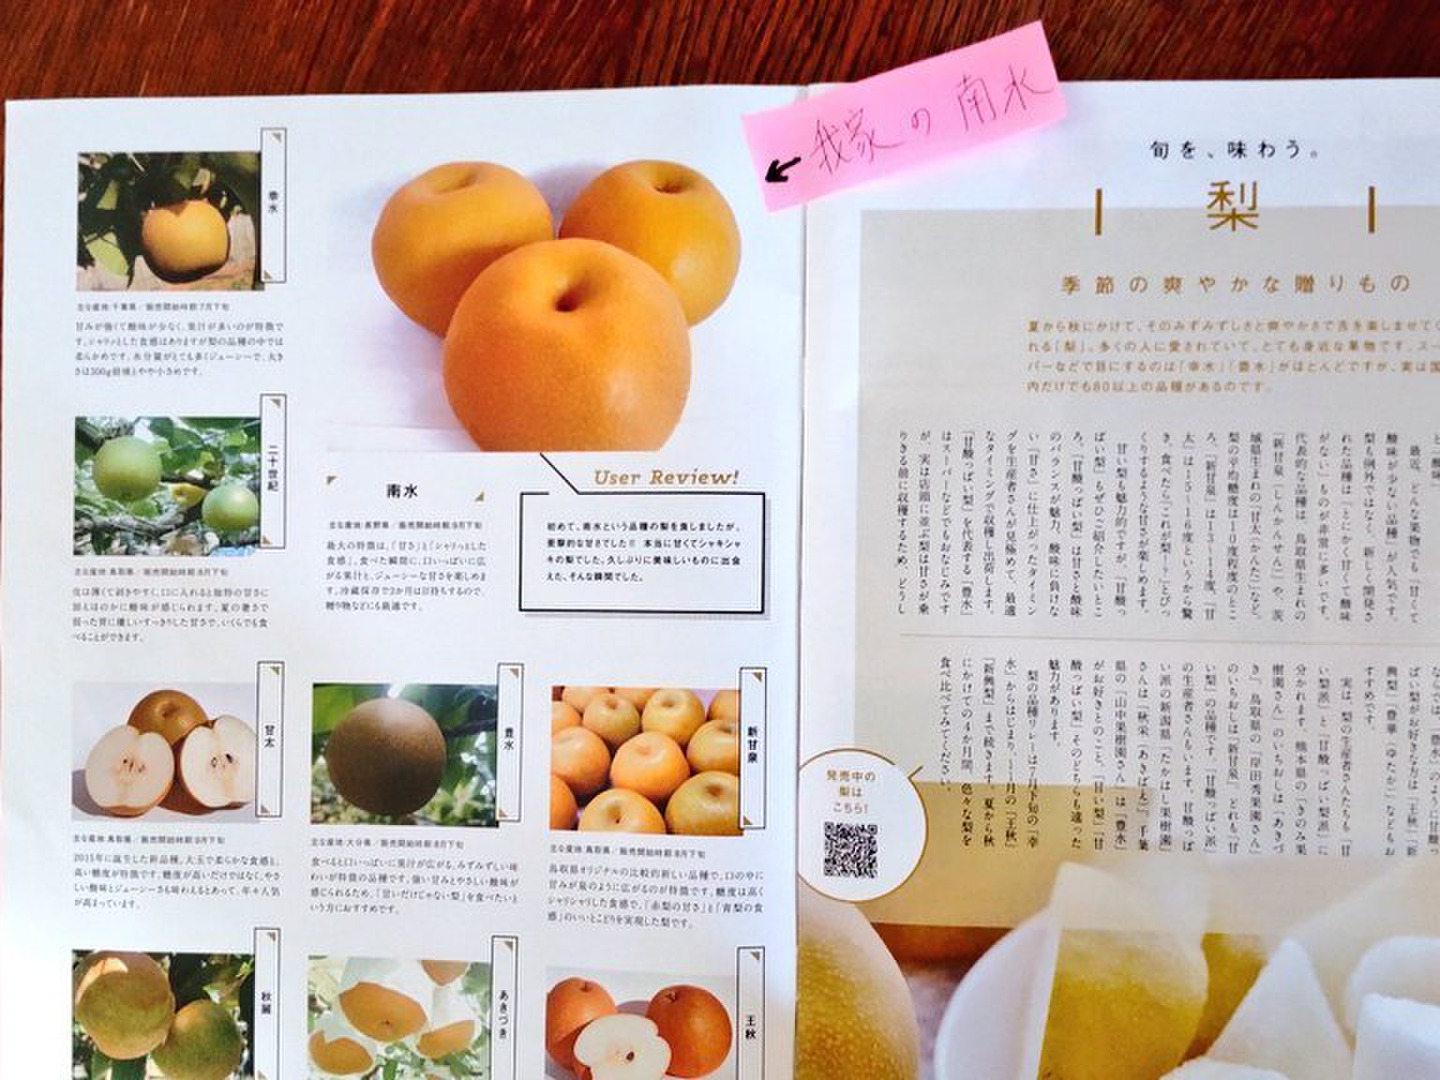 ←我家の南水
幸水
主な産地:千葉県/販売開始時期:7月下旬
甘みが強くて酸味が少なく、果汁が多いのが特徴で
す。シャリッとした食感はありますが梨の品種の中では
柔らかめです。水分量がとても多くジューシーで、大き
さは300g前後とやや小さめです。
二十世紀
主な産地:鳥取県/販売開始時期:8月下旬
皮は薄くて剥きやすく、口に入れると独特の甘さに
加えほのかに酸味が感じられます。夏の暑さで
弱った胃に優しいすっきりした甘さで、いくらでも食
べることができます。
南水
主な産地:長野県/販売開始時期:9月下旬
最大の特徴は、「甘さ」と「シャリっとした
食感」。食べた瞬間に、口いっぱいに広
がる果汁と、ジューシーな甘さを楽しめま
す。冷蔵保存で2か月は日持ちするので、
贈り物などにも最適です。
User Review!
初めて、南水という品種の梨を食しましたが、
衝撃的な甘さでした!! 本当に甘くてシャキシャ
キの梨でした。久しぶりに美味しいものに出会
えた、そんな瞬間でした。
甘太
主な産地:鳥取県/販売開始時期:9月下旬
2015年に誕生した新品種。大玉で柔らかな食感と、
高い糖度が特徴です。糖度が高いだけではなく、やさ
しい酸味とジューシーさも味わえるとあって、年々人気
が高まっています。
豊水
主な産地:大分県/販売開始時期:8月下旬
食べると口いっぱいに果汁が広がる、みずみずしい味
わいが特徴の品種です。強い甘みとやさしい酸味が
感じられるため、「甘いだけじゃない梨」を食べたいと
いう方におすすめです。
新甘泉
主な産地:鳥取県/販売開始時期:8月下旬
鳥取県オリジナルの比較的新しい品種で、口の中に
甘みが泉のように広がるのが特徴です。糖度は高く
シャリシャリした食感で、「赤梨の甘さ」と「青梨の食
感」のいいとこどりを実現した梨です。
秋麗
あきづき
王秋
旬を、味わう。
梨
季節の爽やかな贈りもの
夏から秋にかけて、そのみずみずしさと爽やかさで舌を楽しませてく
れる「梨」。多くの人に愛されていて、とても身近な果物です。スー
パーなどで目にするのは「幸水」「豊水」がほとんどですが、実は国
内だけでも80以上の品種があるのです。
最近、どんな果物でも「甘くて
酸味が少ない品種」が人気です。
梨も例外ではなく、新しく開発さ
れた品種は「とにかく甘くて酸味
がない」ものが非常に多いです。
代表的な品種は、鳥取県生まれの
「新甘泉(しんかんせん)」や、茨
城県生まれの「甘太(かんた)」など。
梨の平均糖度は10度程度のとこ
ろ、「新甘泉」は13〜14度、「甘
太」は15〜16度というから驚
き。食べたら「これが梨!?」とびっ
くりするような甘さが楽しめます。
甘い梨も魅力的ですが、「甘酸っ
ぱい梨」もぜひご紹介したいとこ
ろ。「甘酸っぱい梨」は甘さと酸味
のバランスが魅力。酸味に負けな
い「甘さ」に仕上がったタイミン
グを生産者さんが見極めて、最適
なタイミングで収穫し出荷します。
「甘酸っぱい梨」を代表する「豊水」
はスーパーなどでもおなじみです
が、実は店頭に並ぶ梨は甘さが乗
りきる前に収穫するため、どうし
すすめです。
実は、梨の生産者さんたちも「甘
い梨派」と「甘酸っぱい梨派」に
分かれます。熊本県の「きのみ果
樹園さん」のいちおしは「あきづ
き」、鳥取県の「岸田秀果園さん」
のいちおしは「新甘泉」。どれも「甘
い梨」の品種です。「甘酸っぱい派」
の生産者さんもいます。甘酸っぱ
い派の新潟県「たかはし果樹園」
さんは「秋栄(あきばえ)」、千葉
県の「山中果樹園さん」は「豊水」
がお好きとのこと。「甘い梨」「甘
酸っぱい梨」そのどちらも違った
魅力があります。
梨の品種リレーは7月下旬の「幸
水」からはじまり、11月の「王秋」
「新興梨」まで続きます。夏から秋
にかけての4か月間、色々な梨を
食べ比べてみてください。
発売中の
梨は
こちら!